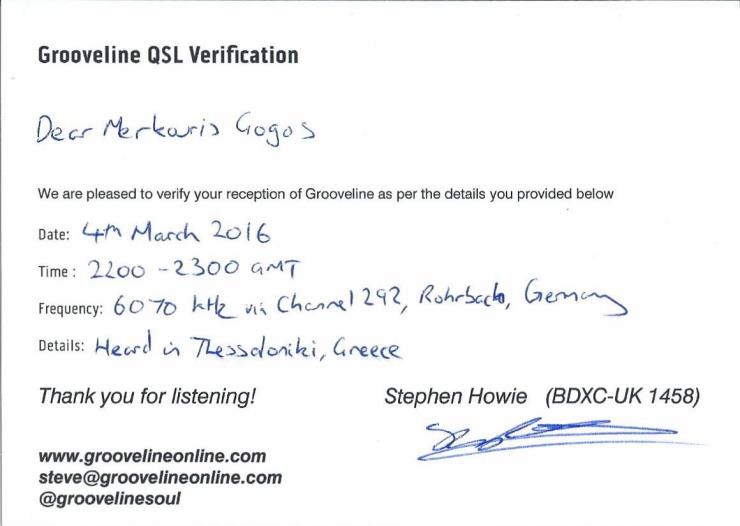 Grooveline QSL Verification
Dear Merkouris Gogos
We are pleased to verify your reception of Grooveline as per the details you provided below
Date: 4th March 2016
Time : 2200 - 2300 GMT
Frequency: 6070 kHz via Channel 292, Rohrbach, Germany
Details: Heard in Thessaloniki, Greece
Thank you for listening! Stephen Howie (BDXC-UK 1458)
www.groovelineonline.com
steve@groovelineonline.com
@groovelinesoul